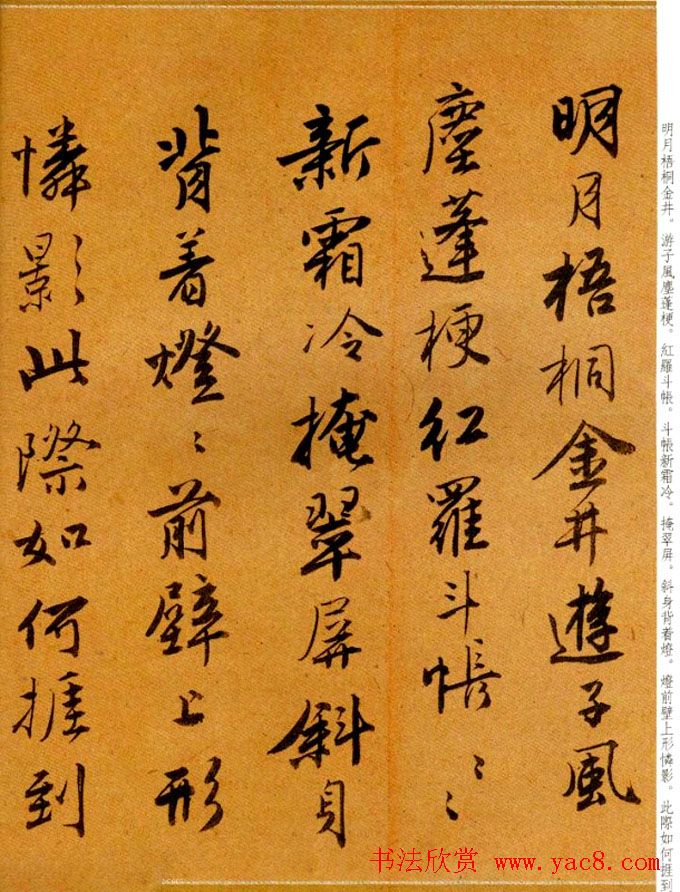 明月梧桐金井。游子風塵蓬梗。紅羅斗帳。斗帳新霜冷。掩翠屏。斜身背着燈。燈前壁上形憐影。此際如何捱到
明月梧桐金井遊子風
塵蓬梗紅羅斗帳〻〻
新霜冷掩翠屏斜身
背着燈〻前壁上形
憐影此際如何捱到
书法欣赏 www.yac8.com